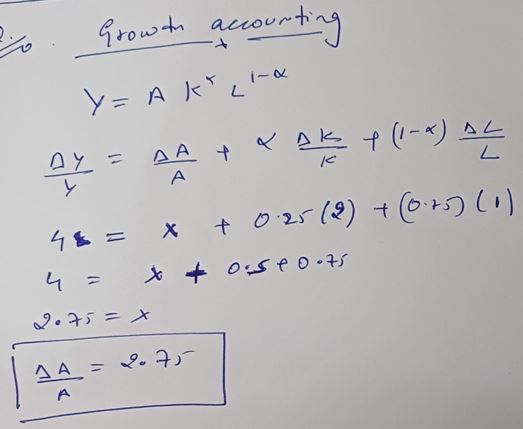 Growth accounting
Y = A K^α L^1-α
ΔY/Y = ΔA/A + α ΔK/K + (1-α) ΔL/L
4 = x + 0.25 (2) + (0.75) (1)
4 = x + 0.5 + 0.75
2.75 = x
ΔA/A = 2.75